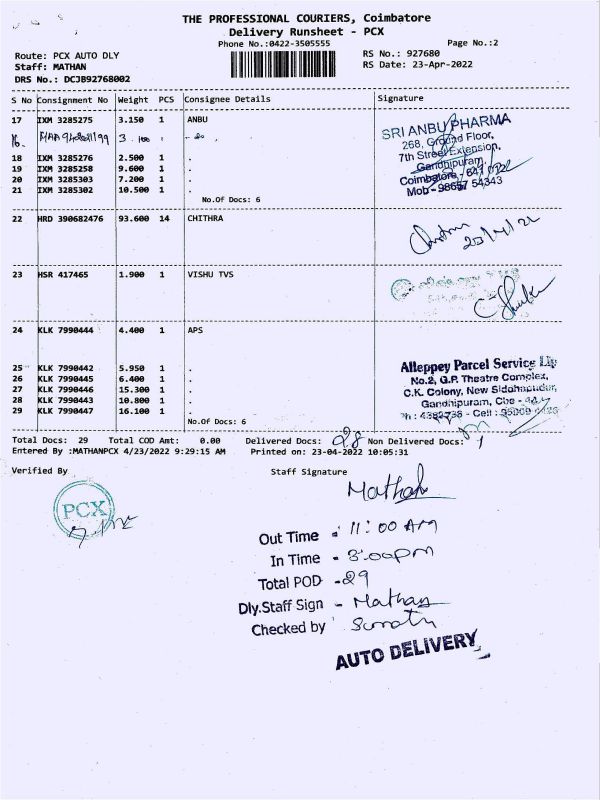 THE PROFESSIONAL COURIERS, Coimbatore
Delivery Runsheet - PCX
Phone No.:0422-3505555
Page No.:2
Route: PCX AUTO DLY
RS No.: 927680
Staff: MATHAN
RS Date: 23-Apr-2022
DRS No.: DCJB92768002
S No Consignment No Weight PCS Consignee Details Signature
17 IXM 3285275 3.150 1 ANBU
16. 3.100 1
18 IXM 3285276 2.500 1 .
19 IXM 3285258 9.600 1 .
20 IXM 3285303 7.200 1 .
21 IXM 3285302 10.500 1 .
No.Of Docs: 6
SRI ANBU PHARMA
268, Ground Floor,
7th Street Extension,
Gandhipuram,
Coimbatore - 641 012
Mob - 98657 54343
22 HRD 390682476 93.600 14 CHITHRA
23 HSR 417465 1.900 1 VISHU TVS
24 KLK 7990444 4.400 1 APS
25 KLK 7990442 5.950 1 .
26 KLK 7990445 6.400 1 .
27 KLK 7990446 15.300 1 .
28 KLK 7990443 10.800 1 .
29 KLK 7990447 16.100 1 .
No.Of Docs: 6
Alleppey Parcel Service
No.2, G.P. Theatre Complex,
C.K. Colony, New Sidhapudur,
Gandhipuram, Cbe -
Ph : - Cell :
Total Docs: 29 Total COD Amt: 0.00 Delivered Docs: 28 Non Delivered Docs: 1
Entered By :MATHANPCX 4/23/2022 9:29:15 AM Printed on: 23-04-2022 10:05:31
Verified By
Staff Signature
PCX
Mathan
Out Time - 11:00 AM
In Time - 8:00pm
Total POD - 29
Dly.Staff Sign - Mathan
Checked by
AUTO DELIVERY